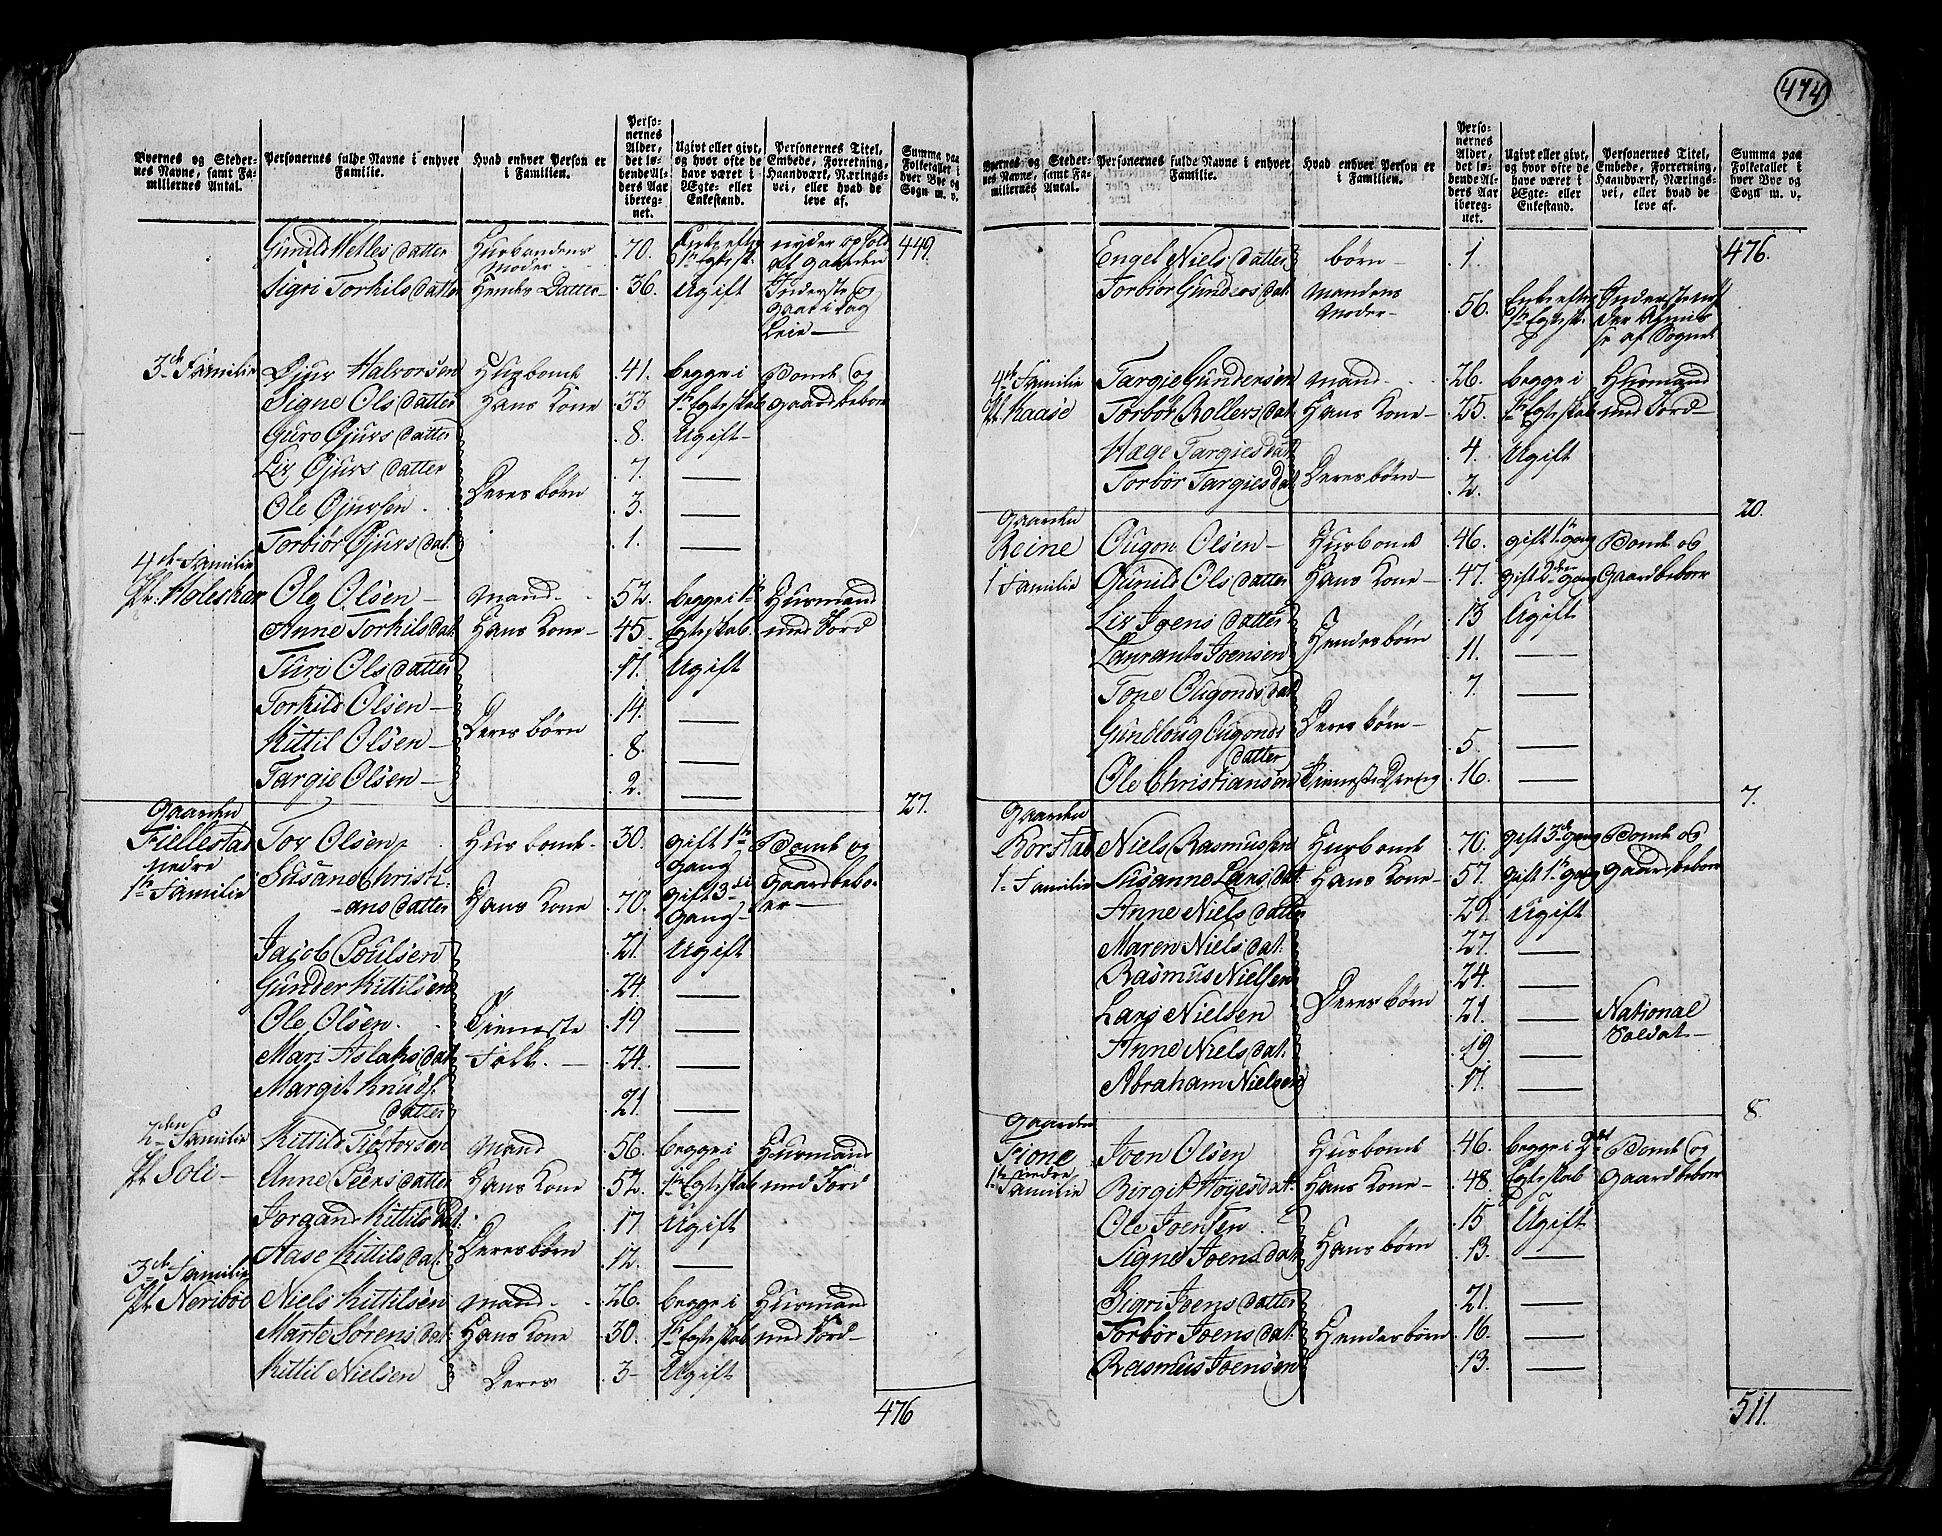 474
Byernes og Steder-
nes Navne, samt Fa-
miliernes Antal.
Personernes fulde Navne i enhver
Familie.
Hvad enhver Person er
i Familien.
Perso-
nernes
Alder,
det lø-
bende Al-
ders Aar
ibereg-
net.
Ugivt eller givt,
og hvor ofte de
have været i
Egte- eller
Enkestand.
Personernes Titel,
Embede, Forretning,
Haandværk, Nærings-
vei, eller hvad de
leve af.
Summa paa
Folketallet i
hver Bye og
Sogn m. v.
Gunild Ketles datter Husbondens Moder 70. Enke efter 1te Egtesk. nyder ophold af gaarden 449.
Sigri Torkils datter Hendes Datter 36. Ugift Inderste og gaar i dag Leie
3de Familie Øjur Halvorsen Husbonde 41. begge i Bonde og
Signe Ols datter Hans Kone 33. 1te Egteskab gaardbeboer
Guro Øjurs datter 8. Ugift
Liv Øjurs datter 7.
Ole Øjursen Deres børn 3.
Torbiør Øjurs dat. 1.
4de Familie
pl. Holeskar Ole Olsen Mand 52. begge i 1te Husmand
Anne Torkils dat. Hans Kone 45. Egteskab med Jord
Turi Ols datter 17. Ugift
Torkild Olsen 14.
Kittil Olsen Deres børn 8.
Targie Olsen 2.
27.
Gaarden
Fiellestad nedre Tov Olsen Husbonde 30. gift 1te Gang Bonde og
1te Familie Susane Christi-
ans datter Hans Kone 70. gift 3die Gang Gaardbebo-
er
Jacob Poulsen 21. Ugift
Gunder Kittilsen 24.
Ole Olsen Tieneste 19
Mari Aslaks dat. Folk. 24.
Margit Knuds
datter 21.
2den Familie Kittild Tiøstorsen Mand 56. begge i Husmand
pl. Soli Anne Peers datter Hans Kone 52. 1te Egteskab med Jord
Jorgand Kittils Dat. 17. Ugift
Aase Kittils dat. Deres børn 12.
3de Familie
pl. Neribøe Niels Kittilsen Mand 26. begge i Husmand
Marte Sørens dat. Hans Kone 30. 1te Egteskab med Jord
Kittil Nielsen Deres 3 Ugift
476
Byernes og Steder-
nes Navne, samt Fa-
miliernes Antal.
Personernes fulde Navne i enhver
Familie.
Hvad enhver Person er
i Familien.
Perso-
nernes
Alder,
det lø-
bende Al-
ders Aar
ibereg-
net.
Ugivt eller givt,
og hvor ofte de
have været i
Egte- eller
Enkestand.
Personernes Titel,
Embede, Forretning,
Haandværk, Nærings-
vei, eller hvad de
leve af.
Summa paa
Folketallet i
hver Bye og
Sogn m. v.
Engel Niels datter børn 1 476.
Torbiør Gunders dat. Mandens Moder 56. Enke efter 1te Egtesk. af Sognet
4de Familie Targie Gundersen Mand 26. begge i Husmand
pl. Kaase Torbør Rollevs dat. Hans Kone 25. 1te Egteskab med Jord
Hæge Targies dat. 4. Ugift
Torbør Targies dat. Deres børn 2.
20.
Gaarden
Reine Ougon Olsen Husbonde 46. gift 1te gang Bonde og
1 Familie Gunild Ols datter Hans Kone 47. gift 2den gang Gaardbeboer
Liv Joens datter 13 Ugift
Laurants Joensen Hendes børn 11.
Tone Ougonds dat. 7.
Gundloug Ougonds
datter Deres børn 5.
Ole Christiansen Tieneste Dreng 16.
7.
Gaarden
Borstad Niels Rasmussen Husbonde 76. gift 3de gang Bonde og
1te Familie Susanne Lars dat. Hans Kone 57. gift 1te gang Gaardbeboer
Anne Niels datter 29. Ugift
Maren Niels dat. 27.
Rasmus Nielsen 24.
Lars Nielsen Deres børn 21. National Soldat
Anne Niels dat. 19.
Abraham Nielsen 17.
8.
Gaarden
Fione nedre Joen Olsen Husbonde 46. begge i 2det Bonde og
1te Familie Birgit Høyes dat. Hans Kone 48. Egteskab Gaardbeboer
Ole Joensen 15 Ugift
Signe Joens dat. Hans børn 13.
Sigri Joens datter 21.
Torbør Joens dat. Hendes børn 16.
Rasmus Joensen 13.
511.